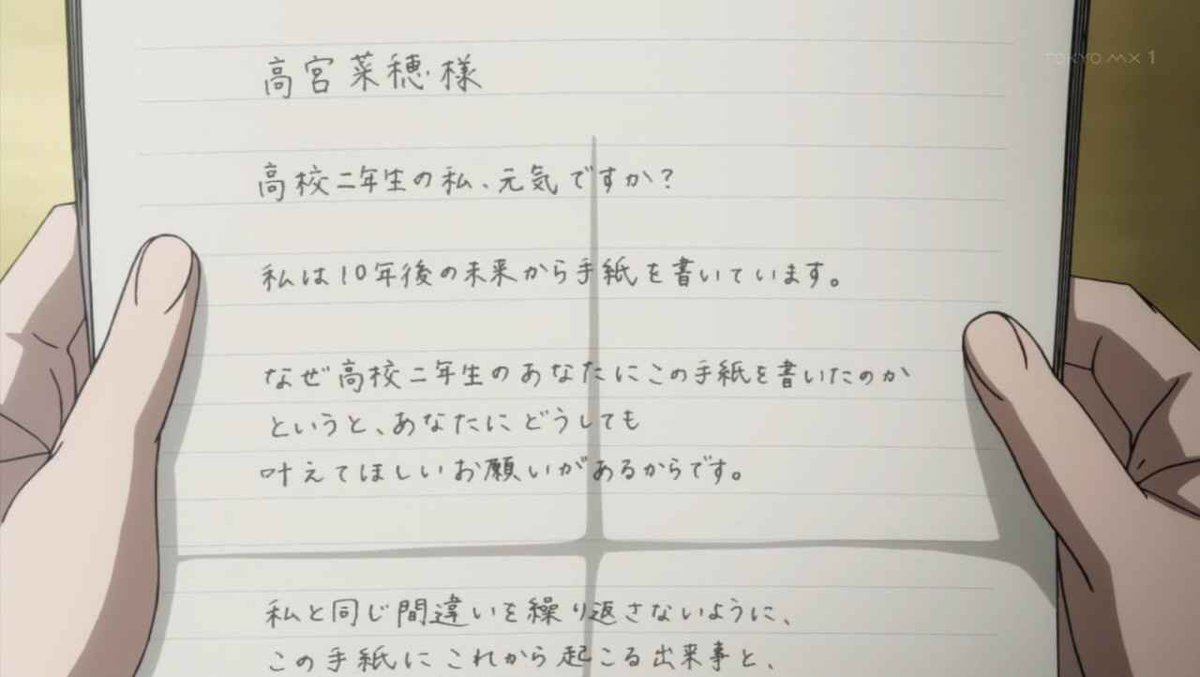 TOKYO MX 1
高宮菜穂様
高校二年生の私、元気ですか?
私は10年後の未来から手紙を書いています。
なぜ高校二年生のあなたにこの手紙を書いたのか
というと、あなたにどうしても
叶えてほしいお願いがあるからです。
私と同じ間違いを繰り返さないように、
この手紙にこれから起こる出来事と、